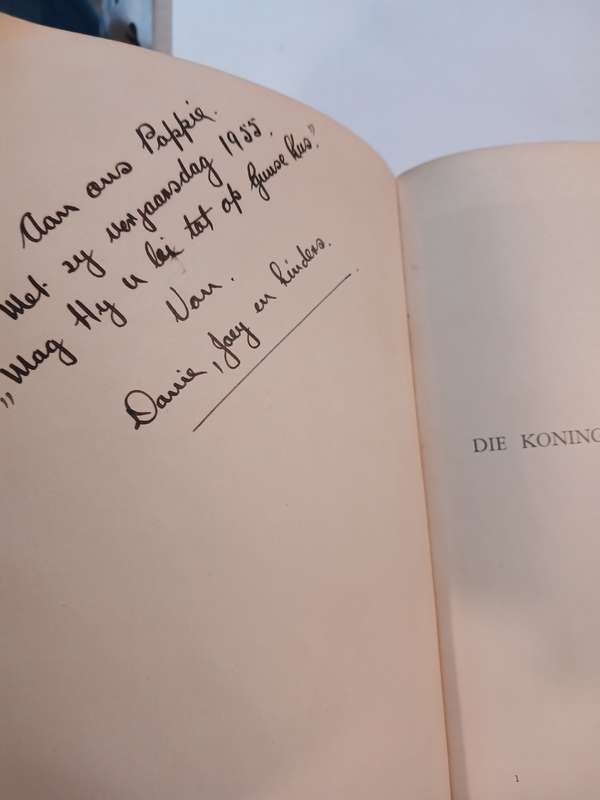 Aan ons Pappie.
Met sy verjaarsdag 1955.
„Mag Hy u lei tot op Guuse Kus."
Van.
Danie, Joey en kinders.
DIE KONING
1